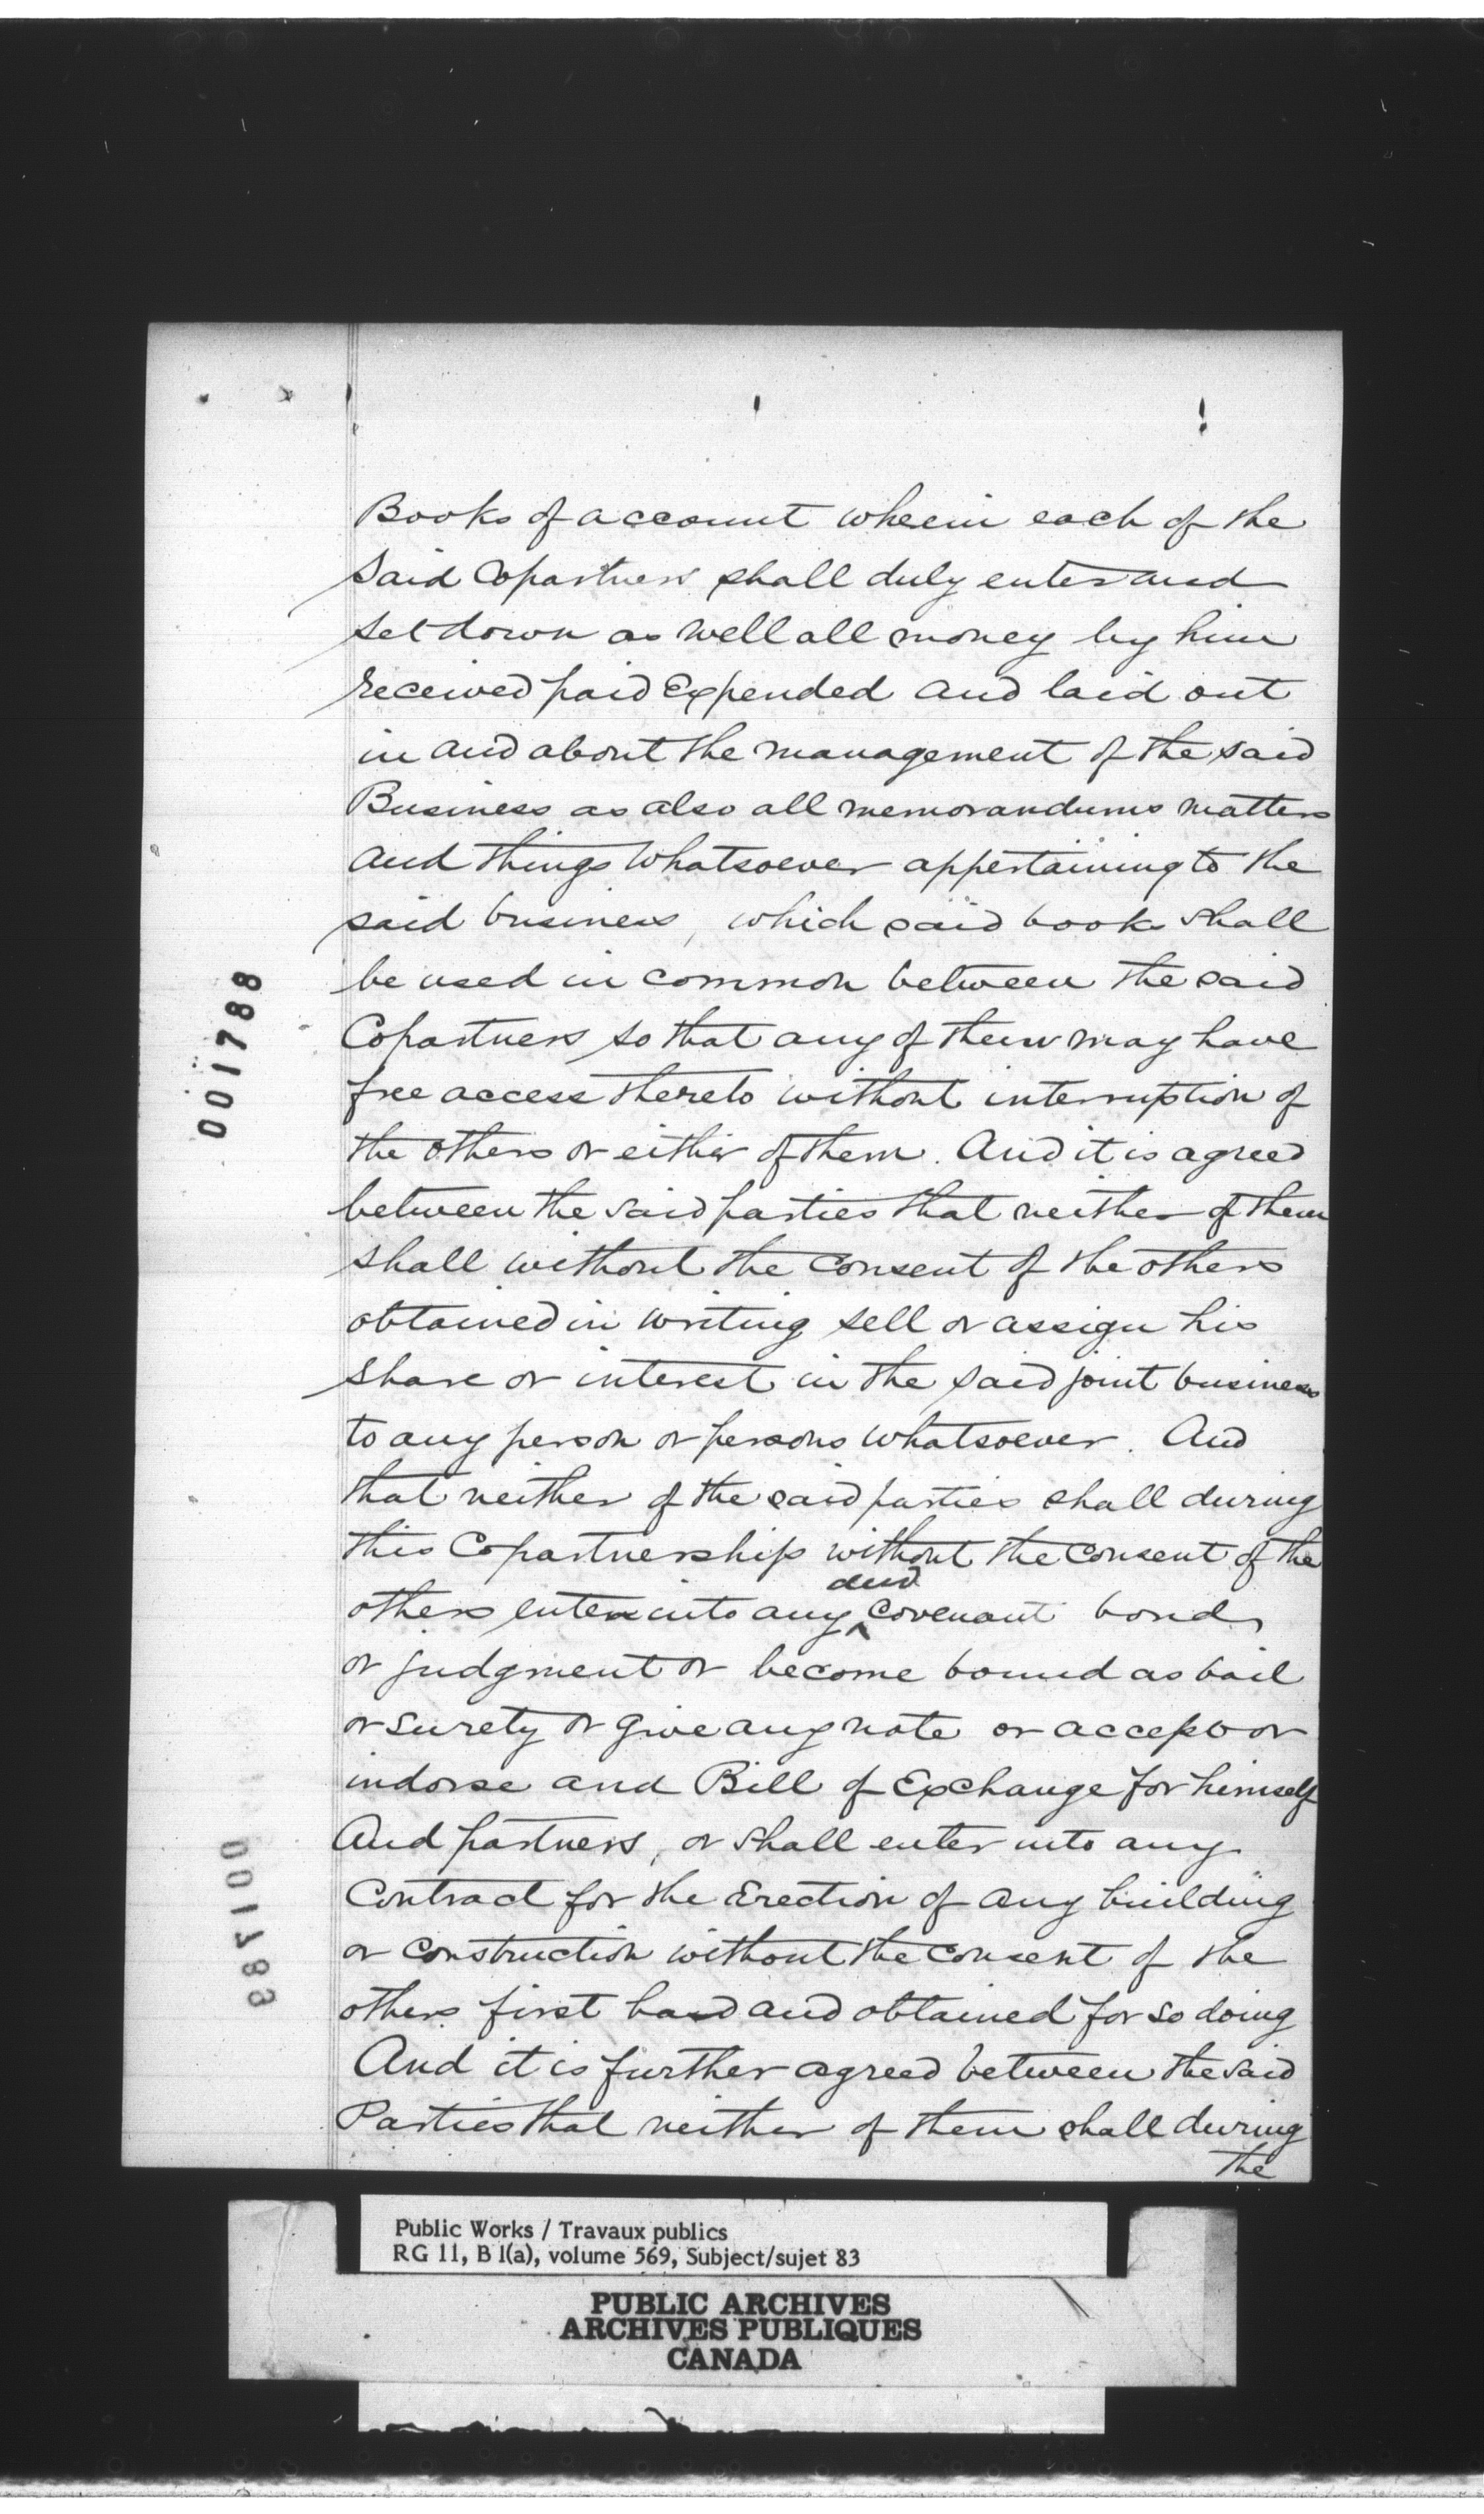 Books of account wherein each of the
said Copartners shall duly enter and
set down as well all money by him
received paid Expended and laid out
in and about the management of the said
Business as also all memorandums matters
and things whatsoever appertaining to the
said business, which said books shall
be used in common between the said
Copartners so that any of them may have
free access thereto without interruption of
the others or either of them. And it is agreed
between the said parties that neither of them
shall without the consent of the others
obtained in writing sell or assign his
share or interest in the said joint business
to any person or persons whatsoever. And
that neither of the said parties shall during
this Copartnership without the consent of the
others enter into any covenant bond,
or judgment or become bound as bail
or surety or give any note or accept or
indorse and Bill of Exchange for himself
And partners, or shall enter into any
Contract for the Erection of any building
or construction without the consent of the
others first had and obtained for so doing
And it is further agreed between the said
Parties that neither of them shall during
the
001788
001783
Public Works / Travaux publics
RG 11, B 1(a), volume 569, Subject/sujet 83
PUBLIC ARCHIVES
ARCHIVES PUBLIQUES
CANADA